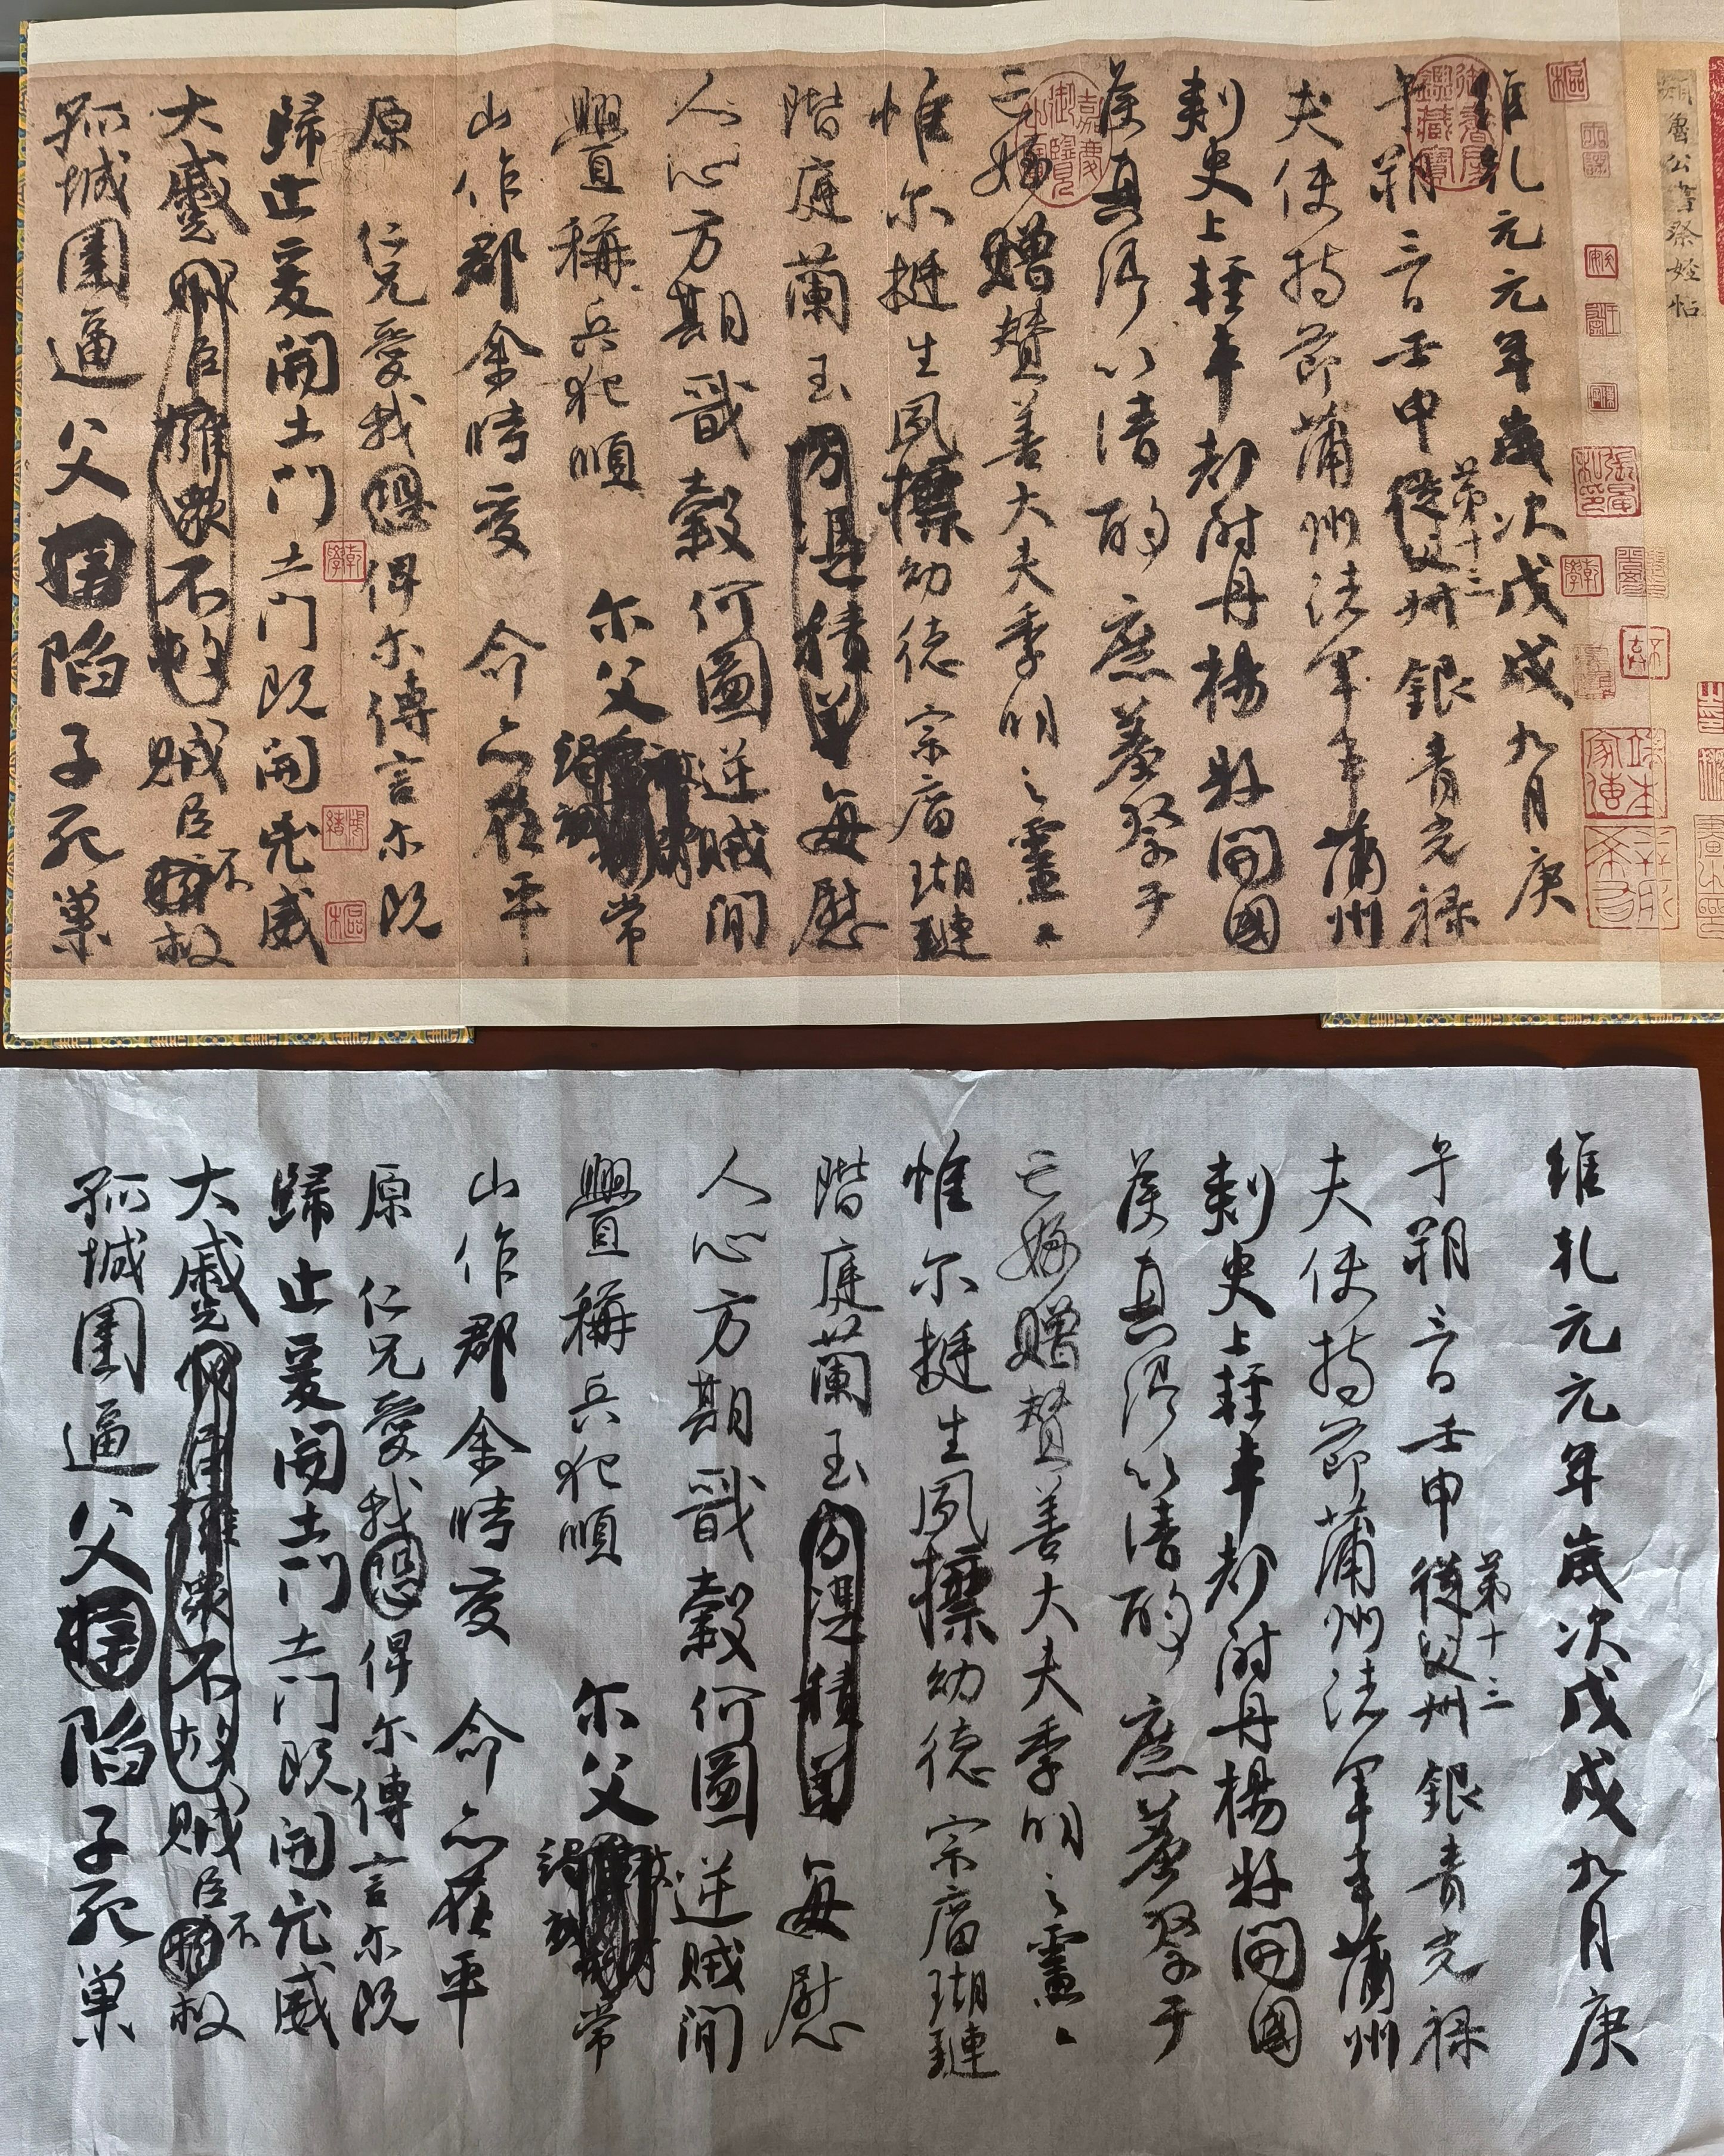 顏魯公書祭姪帖
維乾元元年歲次戊戌九月庚
午朔三日壬申第十三從父銀青光祿
夫使持節蒲州諸軍事蒲州
刺史上輕車都尉丹楊縣開國
侯真卿以清酌庶羞祭于
亡姪贈贊善大夫季明之靈曰
惟爾挺生夙標幼德宗廟瑚璉
階庭蘭玉方憑積善每慰
人心方期戩穀何圖逆賊間
釁稱兵犯順爾父竭誠常
山作郡余時受命亦在平
原仁兄愛我恐俾爾傳言爾既
歸止爰開土門土門既開凶威
大蹙賊臣擁眾不救賊臣不救
孤城圍逼父陷子死巢
維乾元元年歲次戊戌九月庚
午朔三日壬申第十三從父銀青光祿
夫使持節蒲州諸軍事蒲州
刺史上輕車都尉丹楊縣開國
侯真卿以清酌庶羞祭于
亡姪贈贊善大夫季明之靈曰
惟爾挺生夙標幼德宗廟瑚璉
階庭蘭玉方憑積善每慰
人心方期戩穀何圖逆賊間
釁稱兵犯順爾父竭誠常
山作郡余時受命亦在平
原仁兄愛我恐俾爾傳言爾既
歸止爰開土門土門既開凶威
大蹙擁眾不救賊臣不救
孤城圍逼父陷子死巢